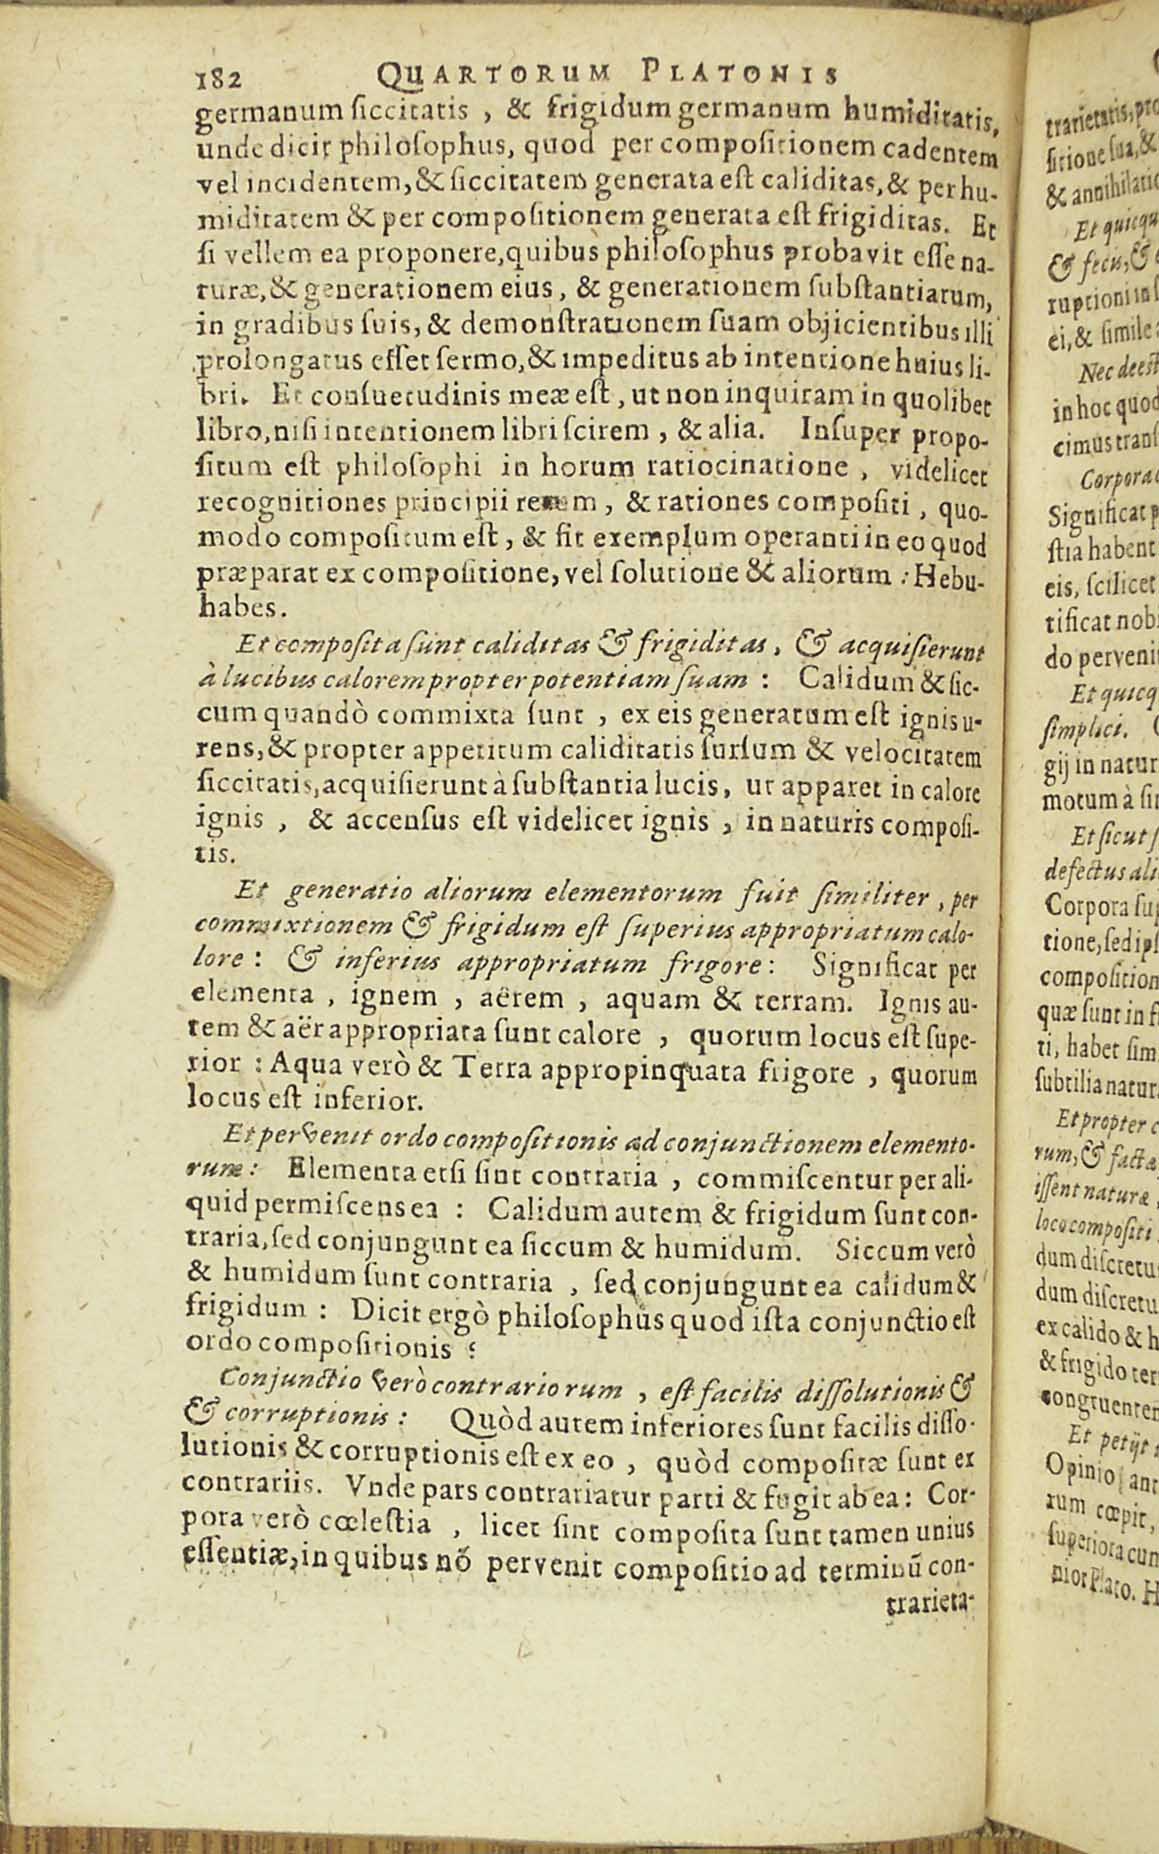 182 QUARTORUM PLATONIS
germanum siccitatis, & frigidum germanum humiditatis,
unde dicit philosophus, quod per compositionem cadentem
vel incidentem, & siccitatem generata est caliditas, & per hu-
miditatem & per compositionem generata est frigiditas. Et
si vellem ea proponere, quibus philosophus probavit esse na-
turæ, & generationem eius, & generationem substantiarum,
in gradibus suis, & demonstrationem suam objicientibus illi
prolongatus esset sermo, & impeditus ab intentione huius li-
bri. Et consuetudinis meæ est, ut non inquiram in quolibet
libro, nisi intentionem libri scirem, & alia. Insuper propo-
situm est philosophi in horum ratiocinatione, videlicet
recognitiones principii rerum, & rationes compositi, quo-
modo compositum est, & sit exemplum operanti in eo quod
præparat ex compositione, vel solutione & aliorum : Hebu-
habes.
Et composita sunt caliditas & frigiditas, & acquisierunt
à lucibus calorem propter potentiam suam : Calidum & sic-
cum quandò commixta sunt, ex eis generatum est ignis u-
rens, & propter appetitum caliditatis sursum & velocitatem
siccitatis, acquisierunt à substantia lucis, ut apparet in calore
ignis, & accensus est videlicet ignis, in naturis composi-
tis.
Et generatio aliorum elementorum fuit similiter, per
commixtionem & frigidum est superius appropriatum calo-
lore : & inferius appropriatum frigore : Significat per
elementa, ignem, aërem, aquam & terram. Ignis au-
tem & aër appropriata sunt calore, quorum locus est supe-
rior : Aqua verò & Terra appropinquata frigore, quorum
locus est inferior.
Et pervenit ordo compositionis ad conjunctionem elemento-
rum : Elementa etsi sint contraria, commiscentur per ali-
quid permiscens ea : Calidum autem & frigidum sunt con-
traria, sed conjungunt ea siccum & humidum. Siccum verò
& humidum sunt contraria, sed conjungunt ea calidum &
frigidum : Dicit ergò philosophus quod ista conjunctio est
ordo compositionis :
Conjunctio verò contrariorum, est facilis dissolutionis &
& corruptionis : Quòd autem inferiores sunt facilis disso-
lutionis & corruptionis est ex eo, quòd compositæ sunt ex
contrariis. Vnde pars contrariatur parti & fugit ab ea : Cor-
pora verò cœlestia, licet sint composita sunt tamen unius
essentiæ, in quibus nõ pervenit compositio ad terminũ con-
trarieta-
trarietatis, pro
sitione sua, &
& annihilatio
Et quicqu
& fecu, &
ruptioni in
ei, & simile
Nec deest
in hoc quod
cimus trans
Corpora
Significat p
stia habent
eis, scilicet
tificat nob
do perveni
Et quicq
simplici.
gij in natur
motum à si
Et sicut
defectus ali
Corpora su
tione, sed ips
composition
quæ sunt in f
ti, habet sim
subtilia natur
Et propter c
rum, & facta
issent naturæ
loco compositi
dum discretu
dum discretu
ex calido & h
& frigido ter
congruenter
Et petijt
Opinio ant
rum cœpit,
superiora cum
nior Plato. H